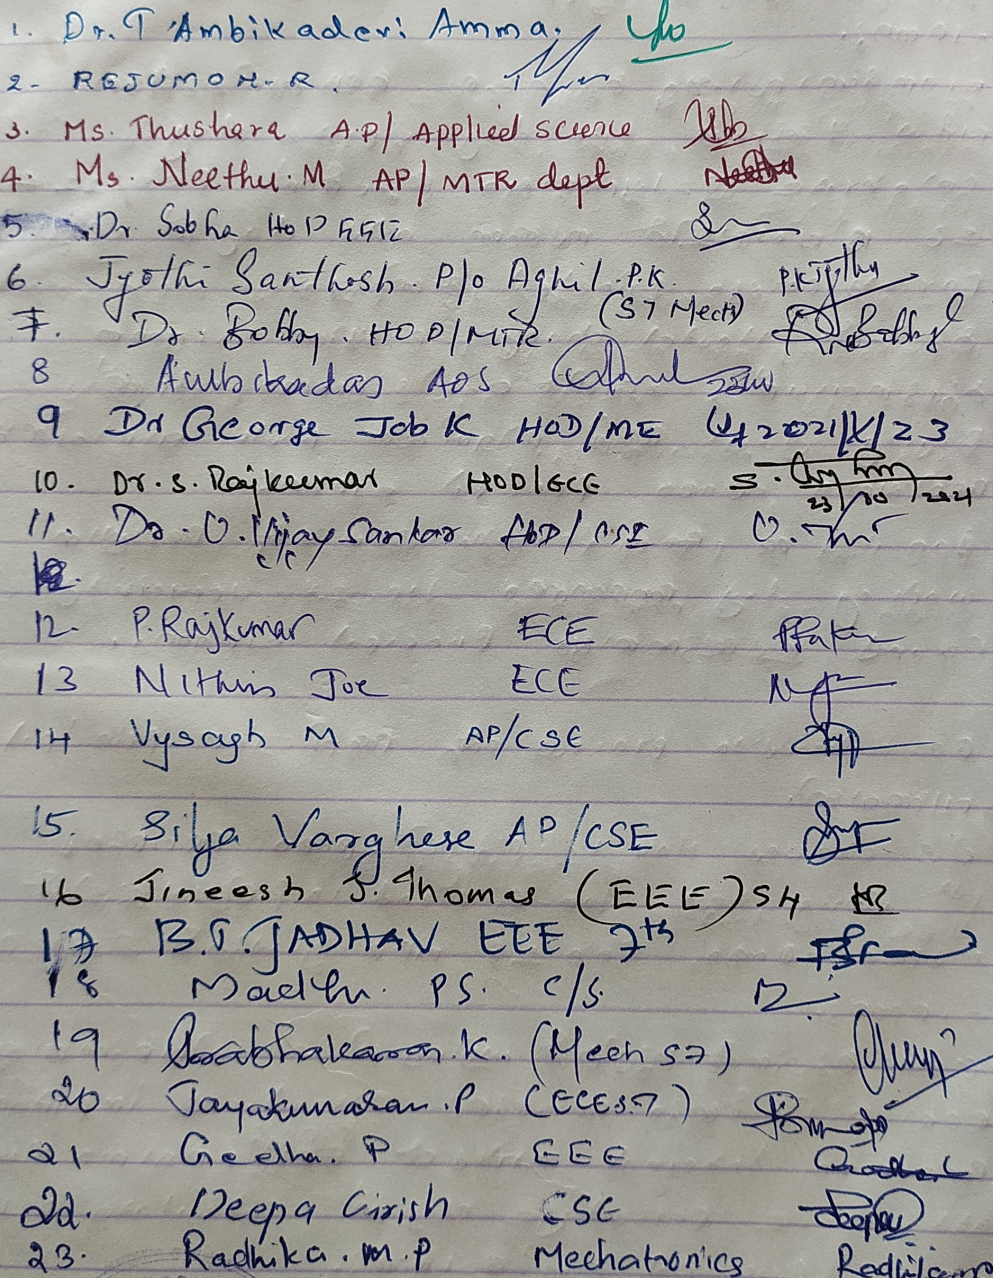 1. Dr. T Ambikadevi Amma.
2- REJUMON. R.
3. Ms. Thushara A.P/ Applied science
4. Ms. Neethu. M AP/ MTR dept
5. Dr Sobha HOD EEE
6. Jyothi Santhosh. P/o Aghil. P.K. P.K Jyothy
(S7 Mech)
7. Dr. Bobby. HOD/MTR.
8 Ambikadas AOS
9 Dr George Job K HOD/ME 2021/X/23
10. Dr. S. Rajkumar HOD/ECE
23/10/2021
11. Dr. O. Vijay Sankar HOD/CSE
12. P. Rajkumar ECE
13 Nithin Joe ECE
14 Vysagh M AP/CSE
15. Silja Varghese AP/CSE
16 Jineesh J. Thomas (EEE) S4
17 B.T. JADHAV EEE 7th
18 Madhu. P S. C/S.
19 Prabhakaran. K. (Mech S7)
20 Jayakumaran. P (ECE S.7)
21 Geetha. P EEE
22. Deepa Girish CSE
23. Radhika. M. P Mechatronics